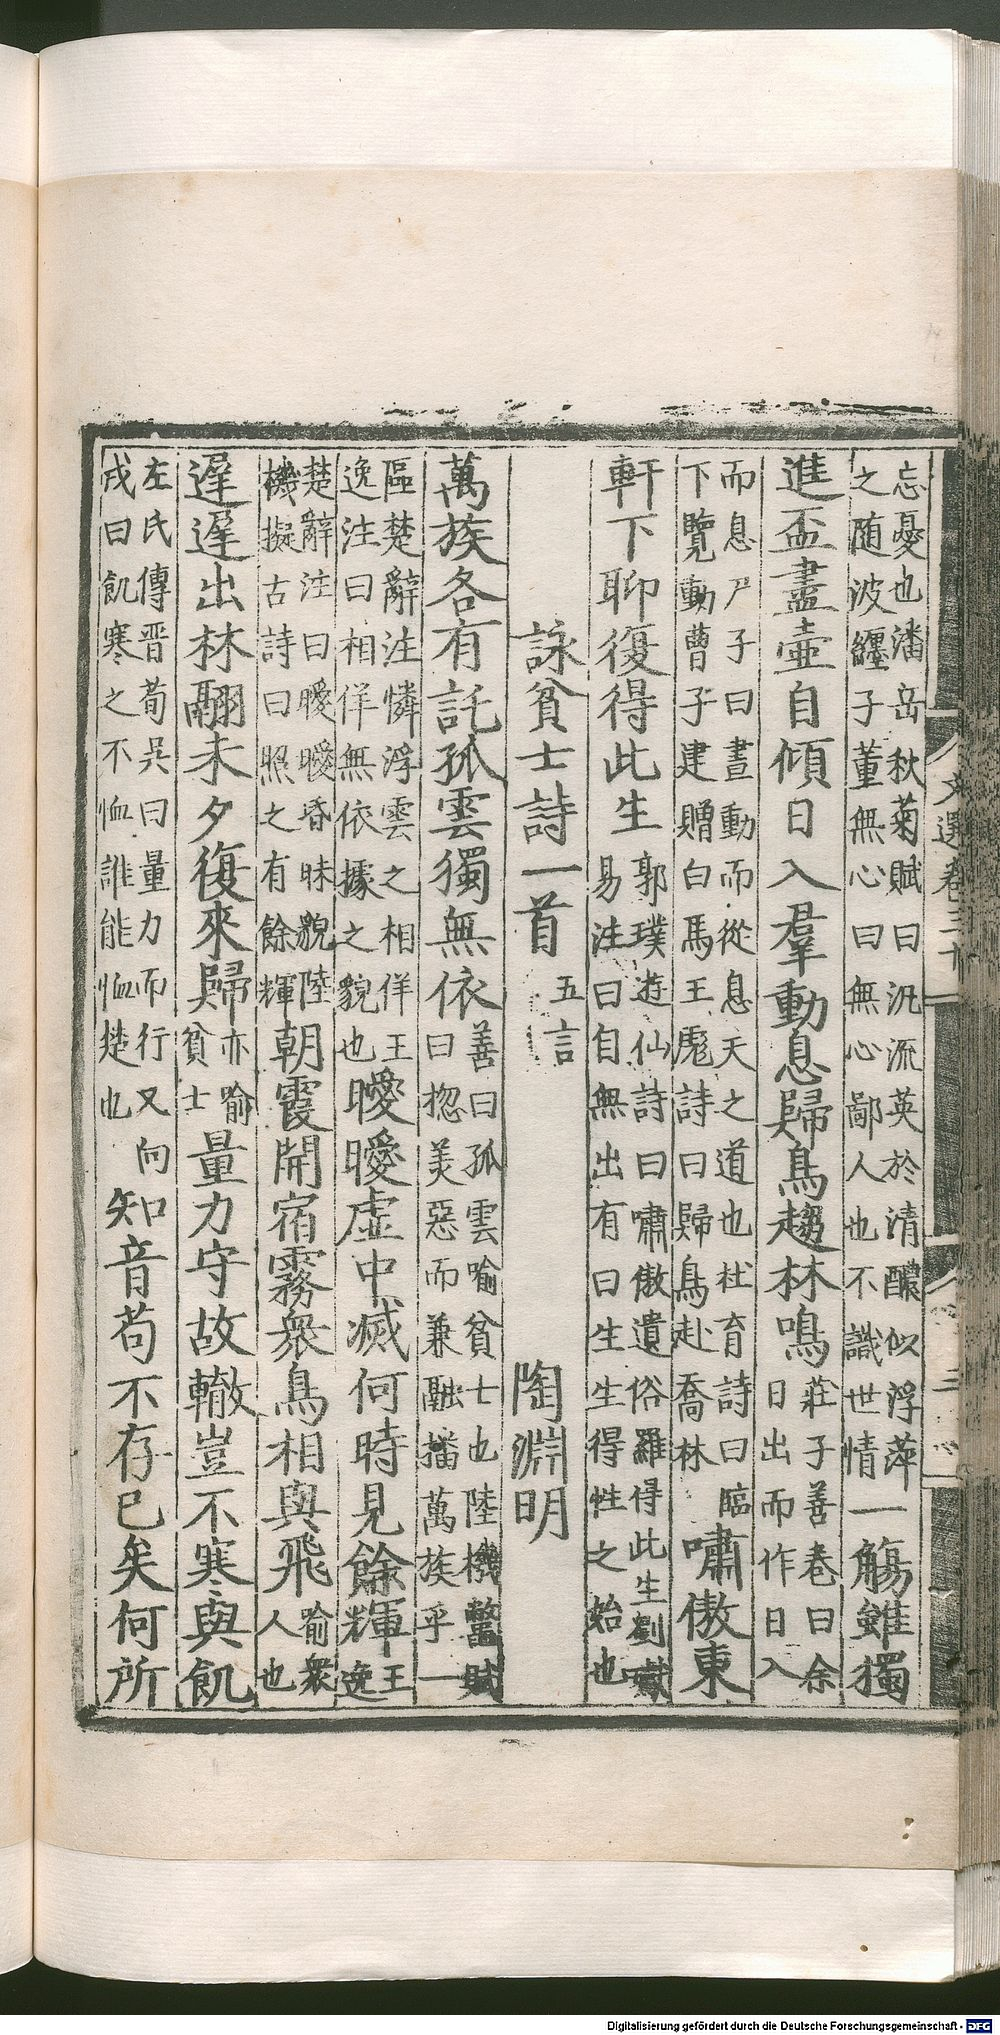 忘憂也潘岳秋菊賦曰汎流英於清醴似浮萍
之随波纏子董無心曰無心鄙人也不識世情
一觴雖獨
進盃盡壷自傾日入羣動息歸鳥趨林鳴
莊子善卷曰余
日出而作日入
而息尸子曰晝動而從息天之道也杜育詩曰臨
下覽動曹子建贈白馬王彪詩曰歸鳥赴喬林
嘯傲東
軒下聊復得此生
郭璞遊仙詩曰嘯傲遺俗羅得此生劉瓛
易注曰自無出有曰生生得性之始也
詠貧士詩一首
五言
陶淵明
萬族各有託孤雲獨無依
善曰孤雲喻貧士也陸機鼈賦
曰揔美惡而兼融播萬族乎一
區楚辭注憐浮雲之相佯王
逸注曰相佯無依據之貌也
曖曖虛中滅何時見餘輝
王
逸
楚辭注曰曖曖昏昧貌陸
機擬古詩曰照之有餘輝
朝霞開宿霧衆鳥相與飛
喻衆
人也
遲遲出林翮未夕復來歸
亦喻
貧士
量力守故轍豈不寒與飢
左氏傳晋荀吳曰量力而行又向
戎曰飢寒之不恤誰能恤楚也
知音苟不存已矣何所
文選卷三十
三
Digitalisierung gefördert durch die Deutsche Forschungsgemeinschaft - DFG